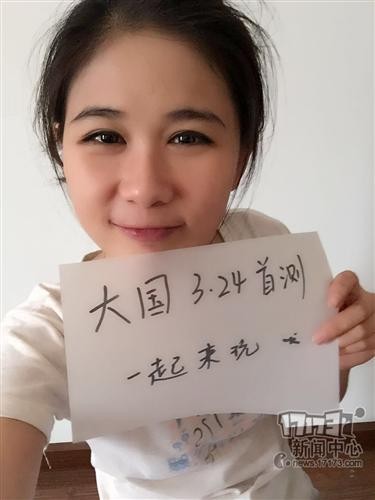 大国 3.24首测
一起来玩
17173
新闻中心
news.17173.com